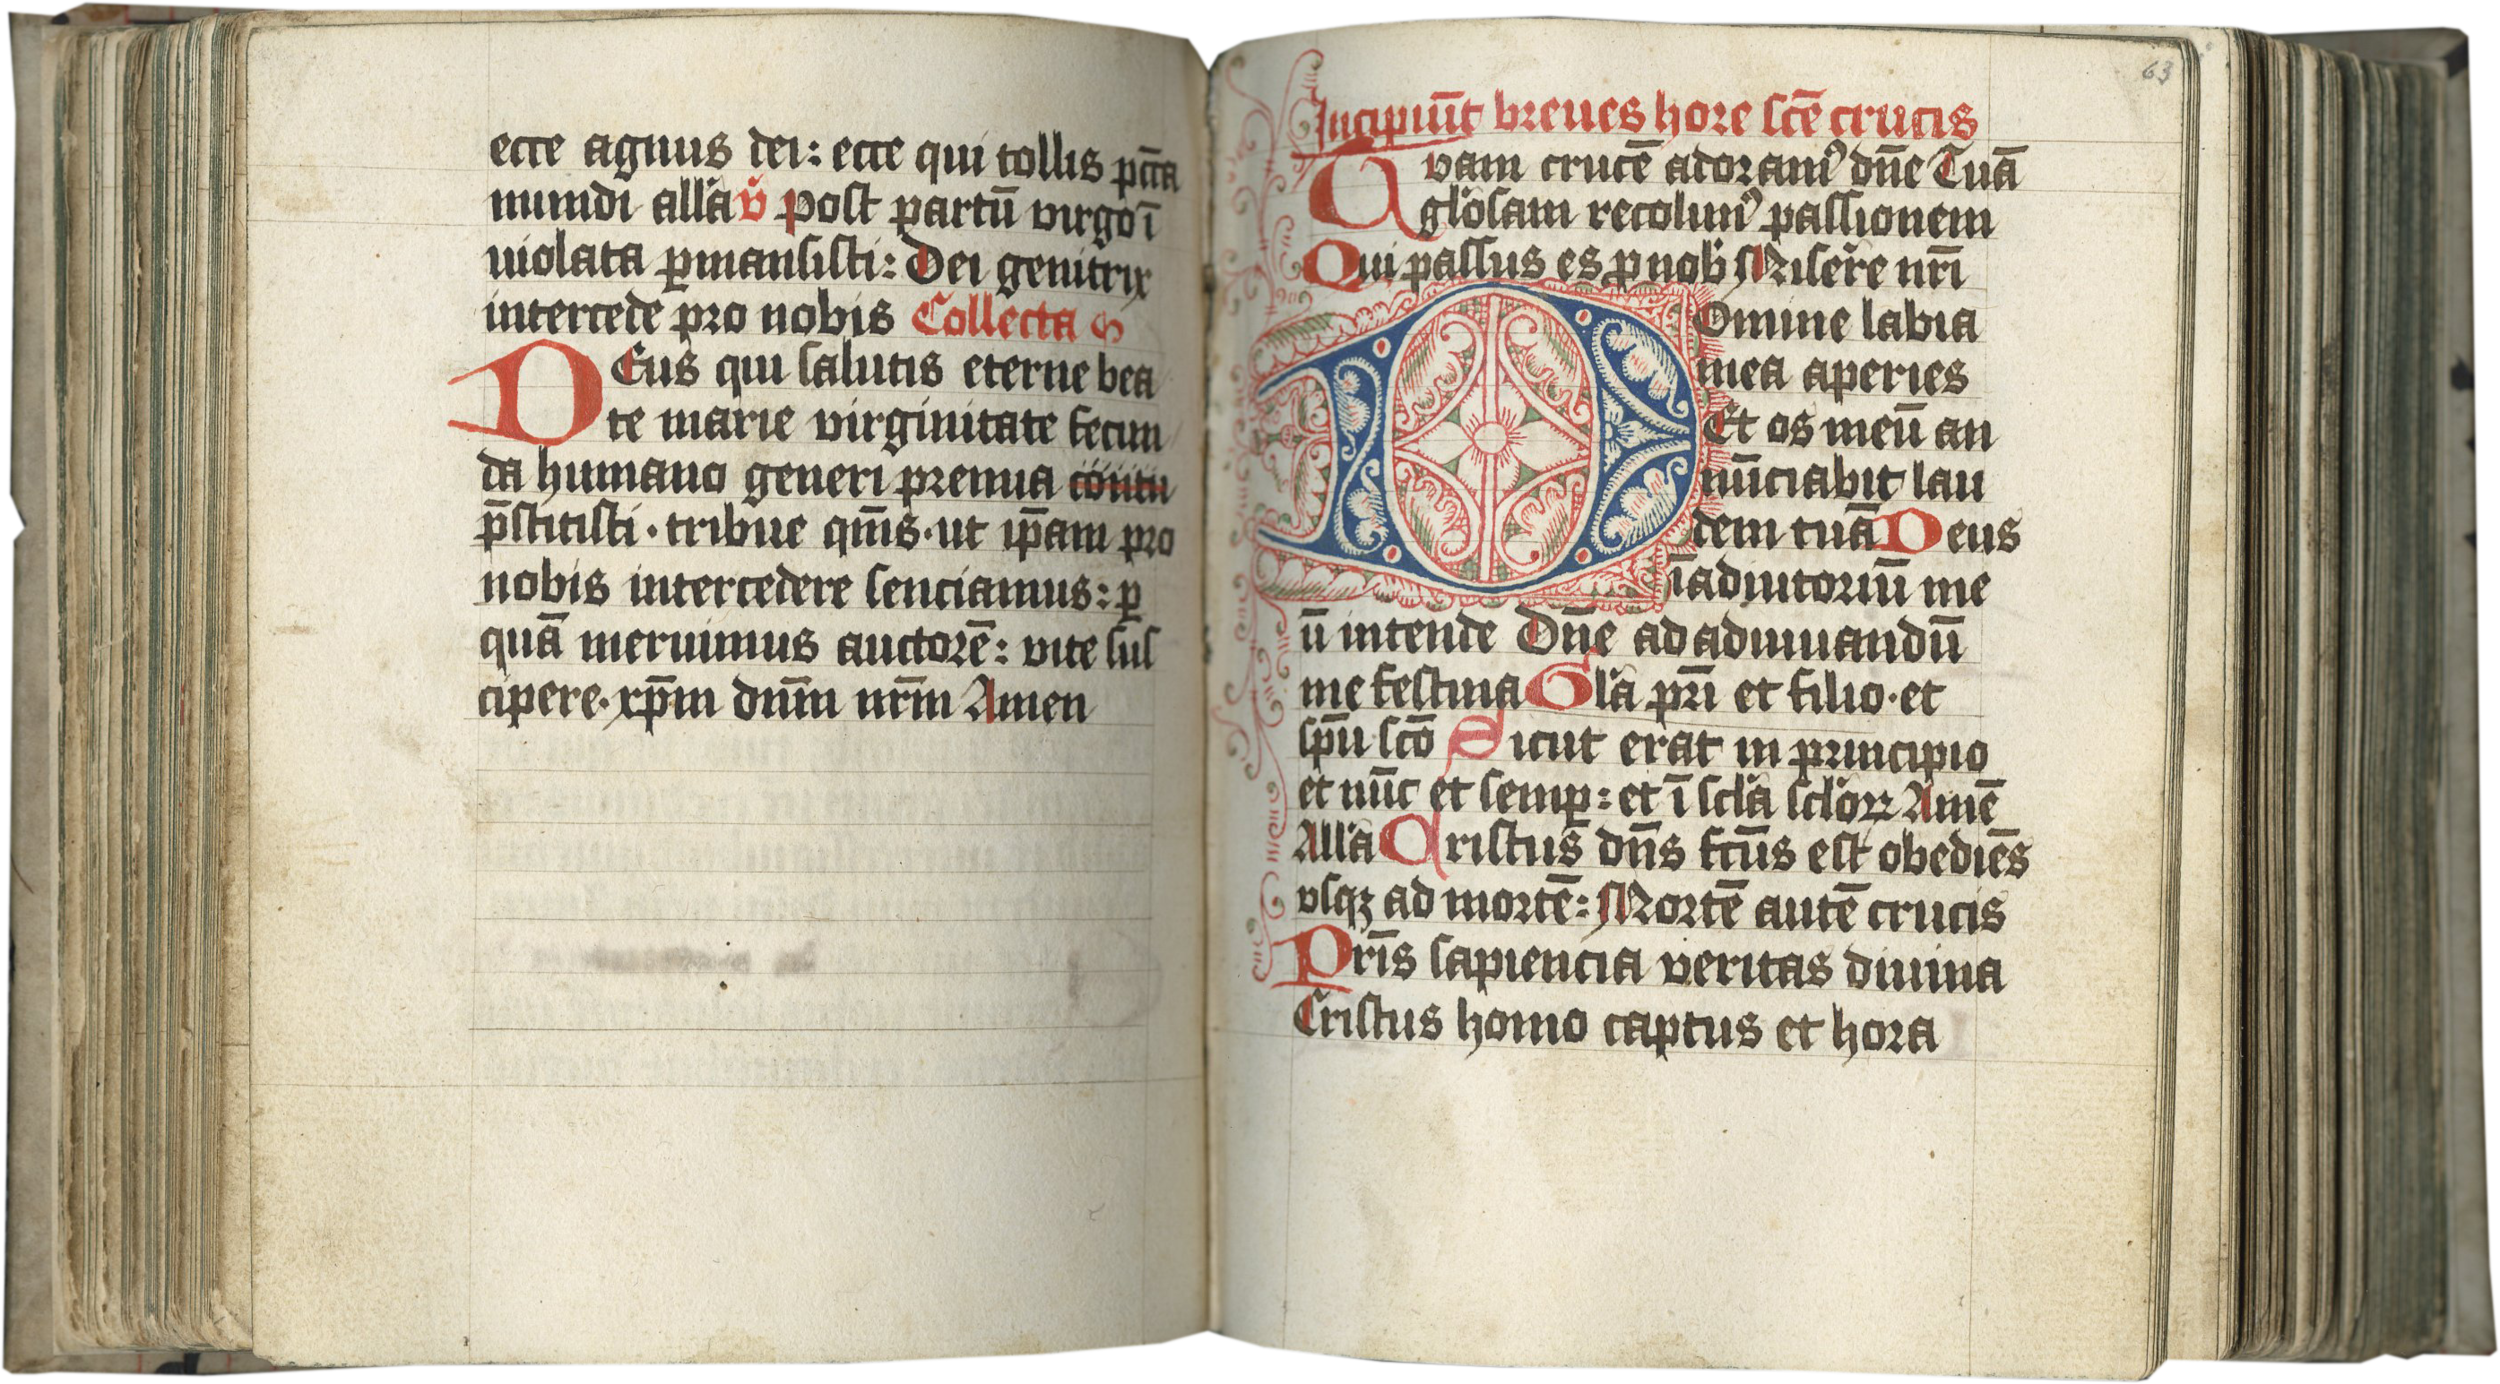 ecce agnus dei: ecce qui tollis pc̄ca
mundi all'a v̄ post partū virgo ī
uiolata ꝑmansisti: Dei genitrix
intercede pro nobis Collecta
DEus qui salutis eterne bea
te marie virginitate fecun
da humano generi premia
p̄stitisti · tribue qm̄s · ut ip̄am pro
nobis intercedere senciamus: ꝑ
quā meruimus auctorē: vite sus
cipere · xp̄m dnm̄ nrm̄ Amen
63
Incipiūt breues hore sc̄e crucis
Tuam crucē adoramꝰ dn̄e Tuā
gl'osam recolimꝰ passionem
Qui passus es ꝓ nob' Miser̄e nr̄i
Domine labia
mea aperies
Et os meū an
nūciabit lau
dem tuā Deus
ī adiutoriū me
ū intende Dn̄e ad adiuuandū
me festina Gl'a pr̄i et filio · et
sp̄u sc̄o Sicut erat in principio
et nūc et semꝑ: et ī scl'a scl'oꝝ Amē
All'a Cristus dn̄s fc̄us est obediēs
vsqꝫ ad mortē: Mortē autē crucis
Pr̄is sapiencia veritas diuina
Cristus homo captus et hora